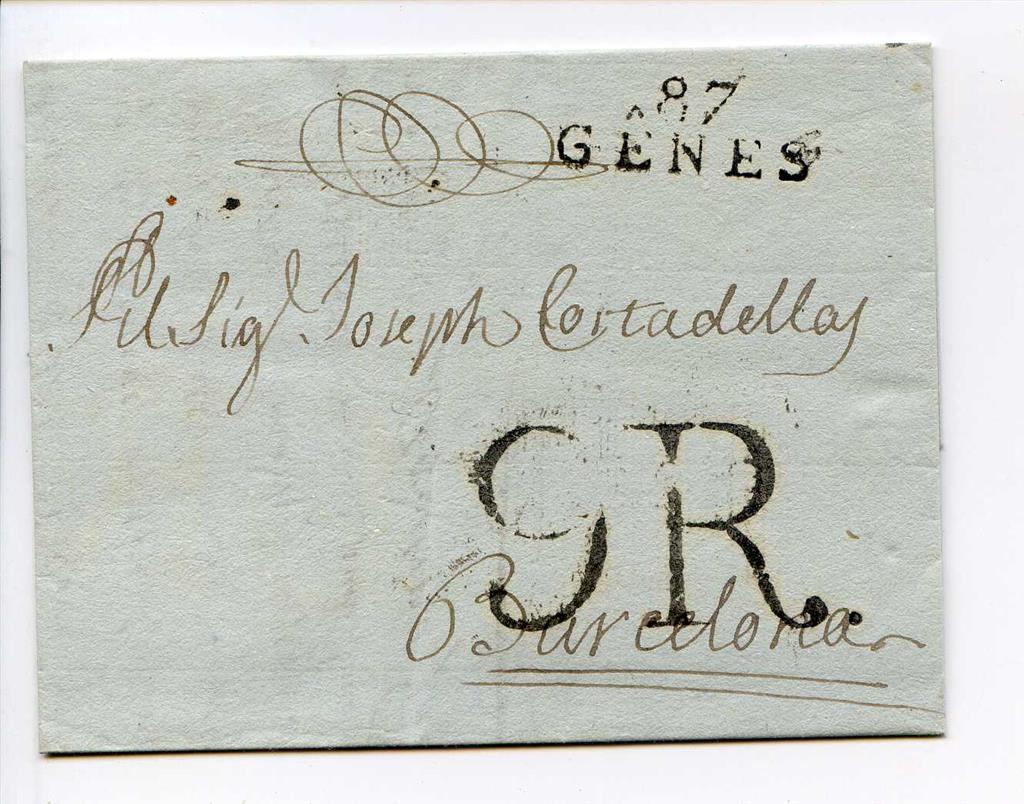 87
GÊNES
Al Sigr. Joseph Cortadellas
9R.
Barcelona